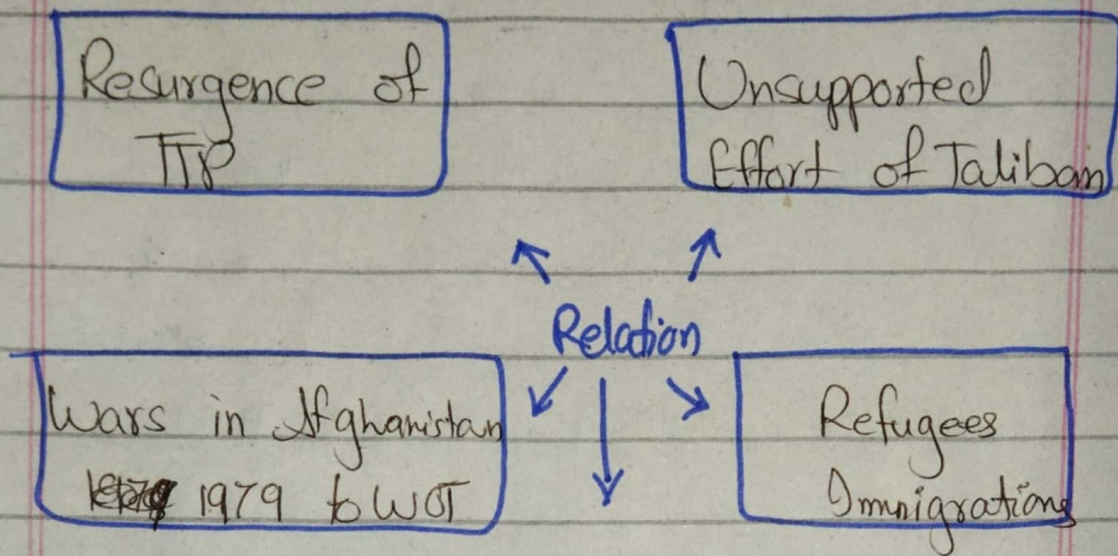 Resurgence of
TTP
Unsupported
Effort of Taliban
Relation
Wars in Afghanistan
1979 to WOT
Refugees
Immigrations